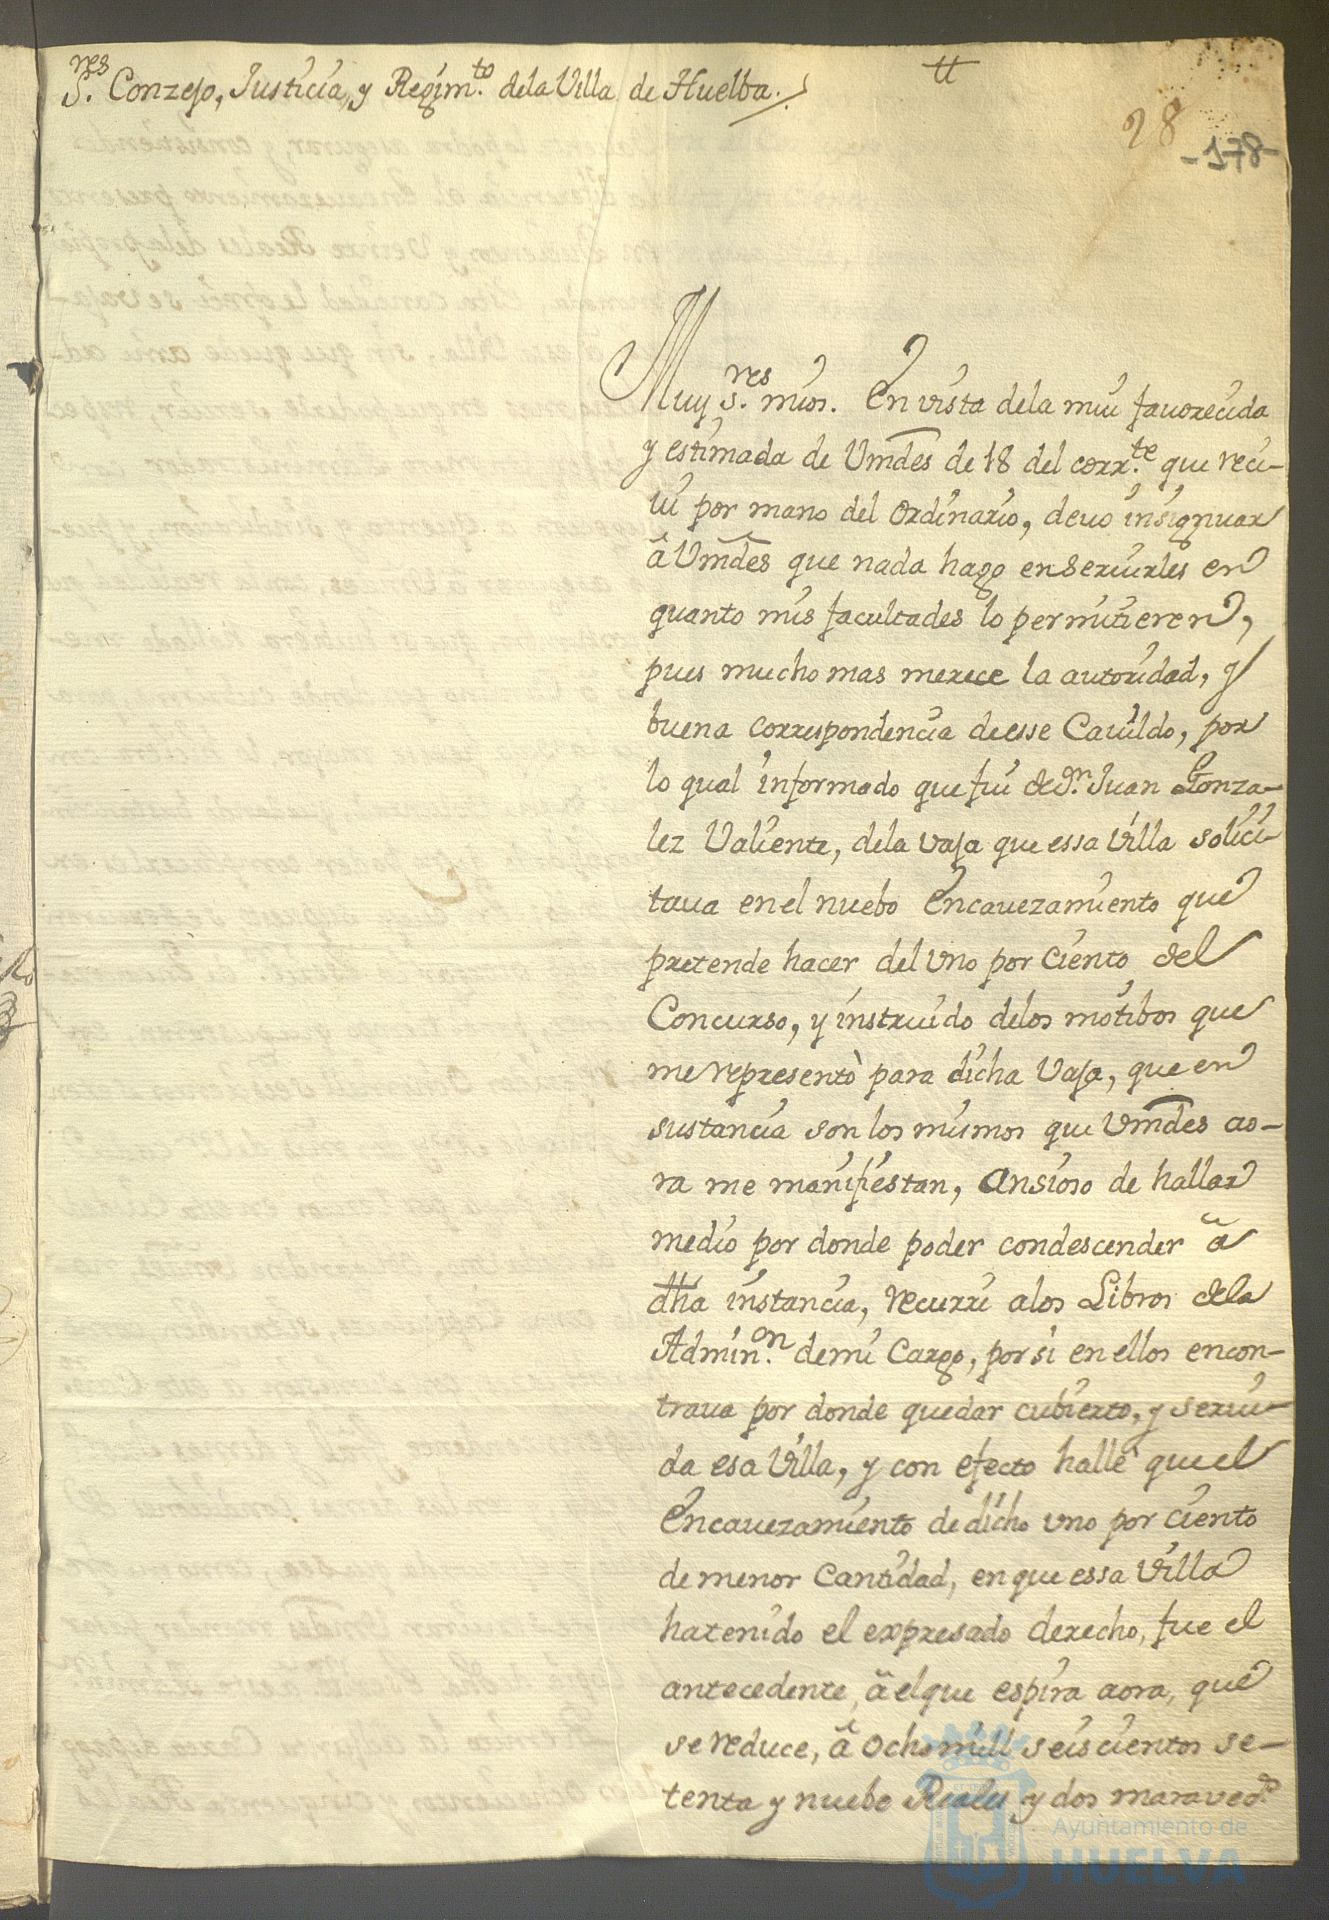 S.res Conzejo, Justicia, y Regim.to dela Villa de Huelba.
tt
28
-178-
Muy S.res mios. En vista dela mui favorecida
y estimada de Vmdes de 18 del corr.te que reci-
vi por mano del ordinario, devo insignuar
â Vmdes que nada hago en servirles en
quanto mis facultades lo permitieren,
pues mucho mas merece la autoridad, y
buena correspondencia de esse Cavildo, por
lo qual informado que fui de D.n Juan Gonza-
lez Valiente, dela vaja que essa Villa solici-
tava en el nuebo Encavezamiento que
pretende hacer del Uno por Ciento del
Concurso, y instruido delos motibos que
me representò para dicha Vaja, que en
sustancia son los mismos que Vmdes ao-
ra me manifiestan, Ansioso de hallar
medio por donde poder condescender â
dha instancia, recurri alos Libros dela
Admin.on de mi Cargo, por si en ellos encon-
trava por donde quedar cubierto, y servi-
da esa Villa, y con efecto hallè que el
Encavezamiento de dicho uno por Ciento
de menor Cantidad, en que essa Villa
ha tenido el expresado derecho, fue el
antecedente, â el que espira aora, que
se reduce, â ocho mill seiscientos se-
tenta y nuebe Reales y dos maraved.s
Ayuntamiento de
HUELVA